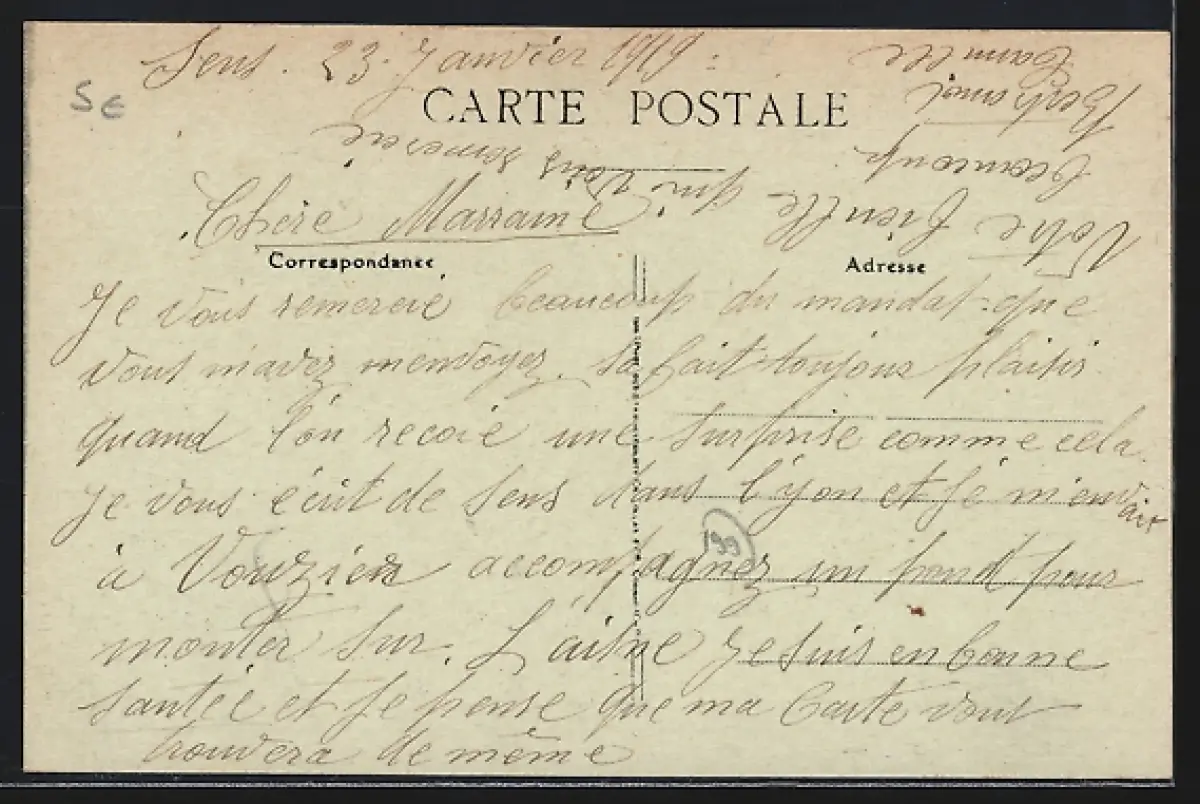 Sens. 23. Janvier 1919:
S€
CARTE POSTALE
Chère Marraine
Correspondance
Adresse
Je vous remercie beaucoup du mandat que
vous m'avez m'envoyez. sa fait toujous plaisir
quand l'on reçoie une surprise comme cela.
Je vous écrit de Sens dans l'yon et je m'envait
à Vouzier accompagnez un pond pour
monter sur. L'aisne je suis en bonne
santée et je pense que ma Carte vous
trouvera de même
199
Votre qui vous remercie
beaucoup
Camille